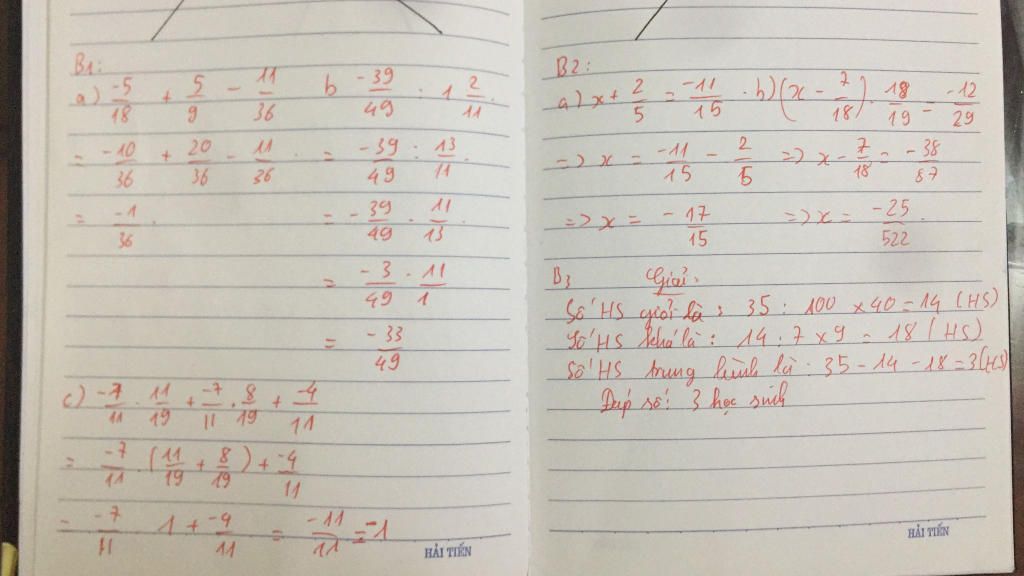 B1:
a) -5/18 + 5/9 - 11/36
= -10/36 + 20/36 - 11/36.
= -1/36.
b -39/49 : 1 2/11.
= -39/49 : 13/11.
= -39/49 . 11/13
= -3/49 . 11/1
= -33/49
c) -7/11 . 11/19 + -7/11 . 8/19 + -4/11
= -7/11 . (11/19 + 8/19) + -4/11
= -7/11 1 + -4/11 = -11/11 = -1
HẢI TIẾN
B2:
a) x + 2/5 = -11/15
=> x = -11/15 - 2/5
=> x = -17/15
. b) (x - 7/18) . 18/19 = -12/29
=> x - 7/18 = -38/87
=> x = -25/522.
B3 Giải:
Số HS giỏi là : 35 : 100 x 40 = 14 (HS)
Số HS khá là : 14 : 7 x 9 = 18 (HS)
Số HS trung bình là : 35 - 14 - 18 = 3 (HS)
Đáp số: 3 học sinh
HẢI TIẾN